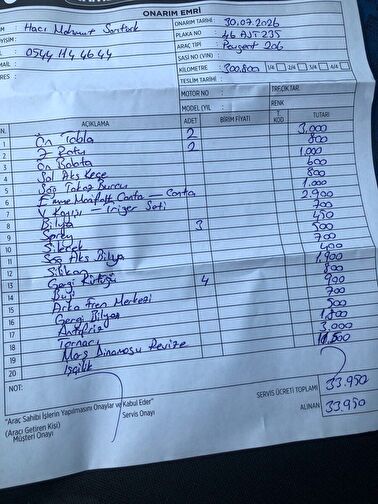 ONARIM EMRİ
: Hacı Mehmut Şentürk
ONARIM TARİHİ : 30.07.2026
PLAKA NO : 46 AJT 235
: 0544 114 46 44
ARAÇ TİPİ Peugeot 206
ŞASİ NO (VİN) :
KİLOMETRE 300.800 1/4 2/4 3/4 4/4
TESLİM TARİHİ :
MOTOR NO : TRFÇIK.TAR.
MODEL (YIL : RENK
N. AÇIKLAMA ADET BİRİM FİYATI T. KOD TUTARI
1 Ön Tabla 2 3.000
2 Z Rotu 2 800
3 Ön Balata 1.000
4 Sol Aks Keçe 600
5 800
6 Emme Manifolt Conta - Conta 1.000
7 V Kayışı - Triger Seti 2.900
8 Bilya 700
9 Sprey 3 450
10 Silecek 500
11 Aks Bilya 700
12 Silikon 400
13 Gergi Kütüğü 1.900
14 Buji 4 800
15 Arka Fren Merkezi 900
16 Gergi Bilyası 700
17 Antifriz 500
18 Tornacı 1.800
19 Marş Dinamosu Revize 3.000
20 İşçilik
NOT:
SERVİS ÜCRETİ TOPLAMI 33.950
"Araç Sahibi İşlerin Yapılmasını Onaylar ve Kabul Eder"
ALINAN 33.950
(Aracı Getiren Kişi) Servis Onayı
Müşteri Onayı